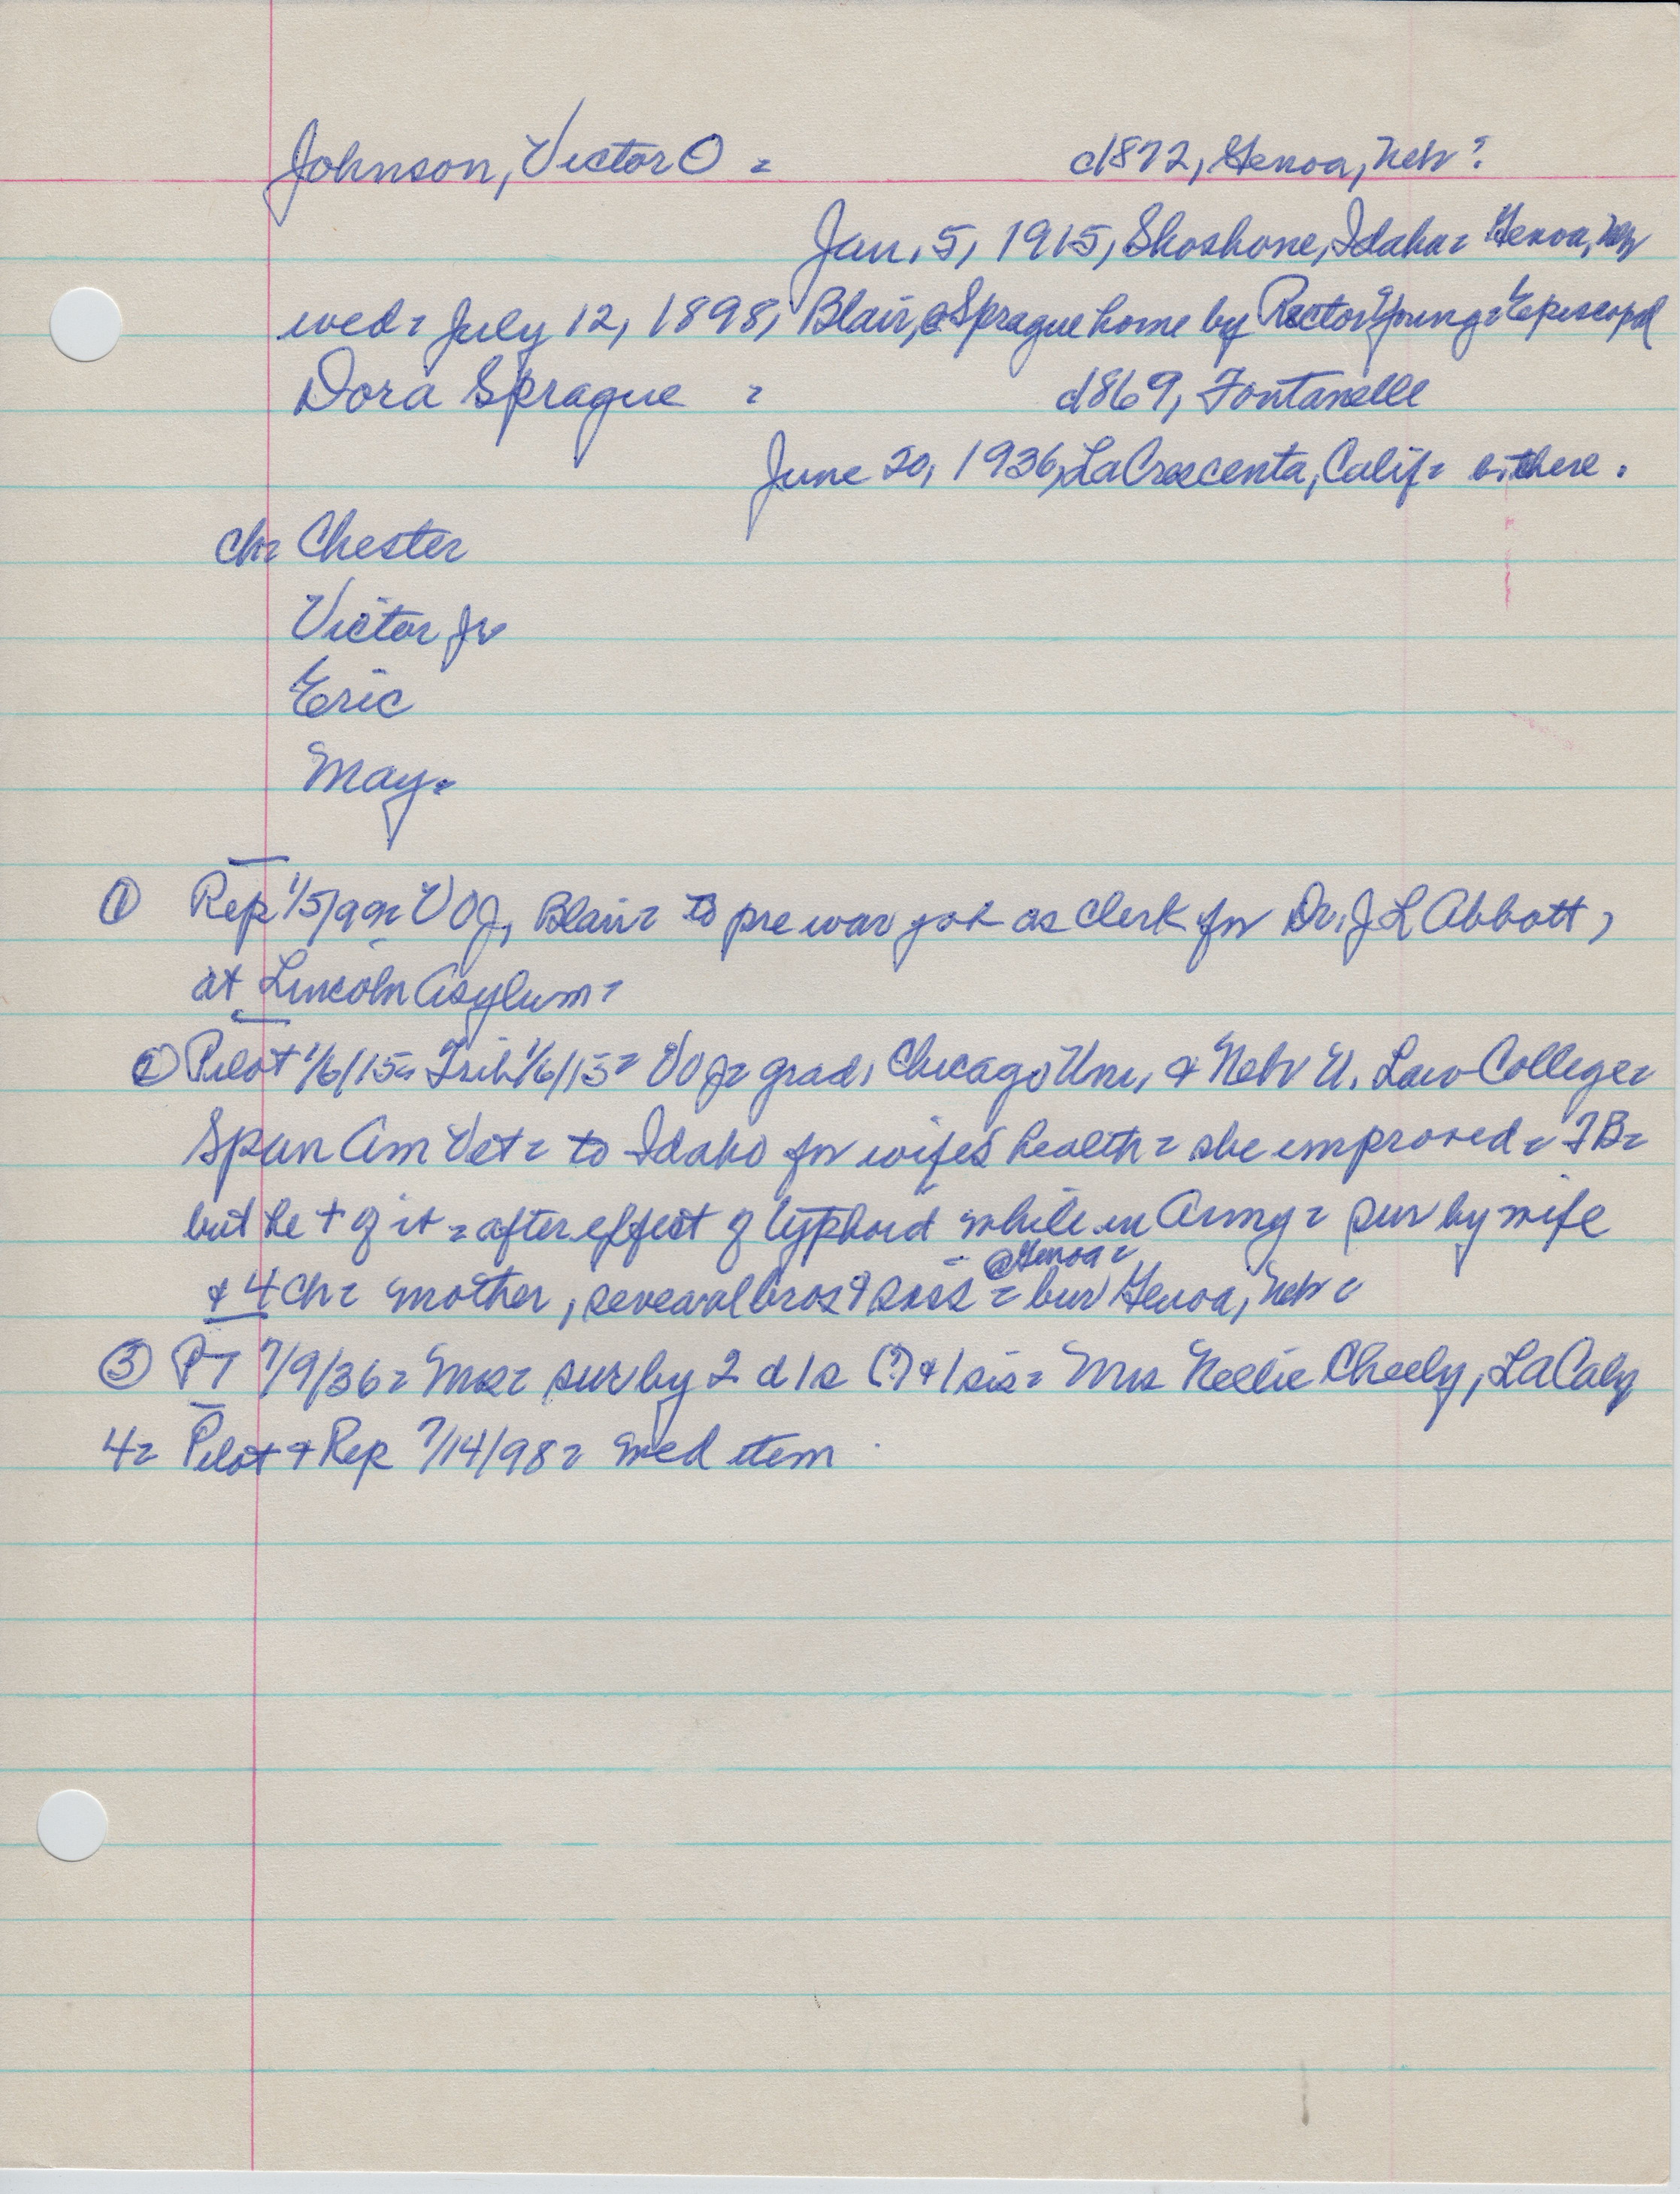 Johnson, Victor O = c1872, Genoa, Nebr?
Jan. 5, 1915, Shoshone, Idaho = Genoa,
wed = July 12, 1898, Blair, @ Sprague home by Rector Young = Episcopal
Dora Sprague = c1869, Fontanelle
June 20, 1936, LaCrescenta, Calif = there.
ch = Chester
Victor Jr
Eric
May =
① Rep 1/5/99 = VOJ, Blair = to pre war job as clerk for Dr. J L Abbott,
at Lincoln Asylum =
② Pilot 1/6/15 = Trib 1/6/15 = VOJ = grad. Chicago Uni, & Nebr U. Law College =
Span Am Vet = to Idaho for wife's health = she improved = TB =
but he + of it = after effect of typhoid while in Army = sur by wife
& 4 ch = mother, several bros & siss @ Genoa = = bur Genoa, Nebr =
③ PT 7/9/36 = Mrs = sur by 2 d 1 s (?) & 1 sis = Mrs Nellie Cheely,
4 = Pilot & Rep 7/14/98 = wed item